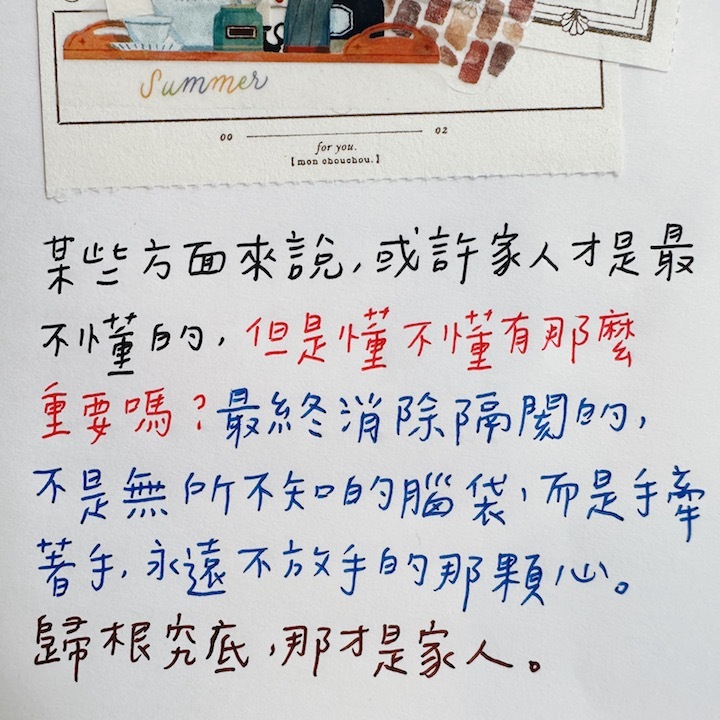 Summer
00 02
for you.
【mon chouchou.】
某些方面來說,或許家人才是最
不懂的,但是懂不懂有那麼
重要嗎?最終消除隔閡的,
不是無所不知的腦袋,而是手牽
著手,永遠不放手的那顆心。
歸根究底,那才是家人。